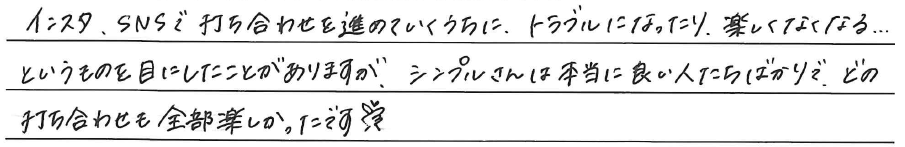 インスタ、SNSで打ち合わせを進めていくうちに、トラブルになったり、楽しくなくなる…
というものを目にしたことがありますが、シンプルさんは本当に良い人たちばかりで、どの
打ち合わせも全部楽しかったです